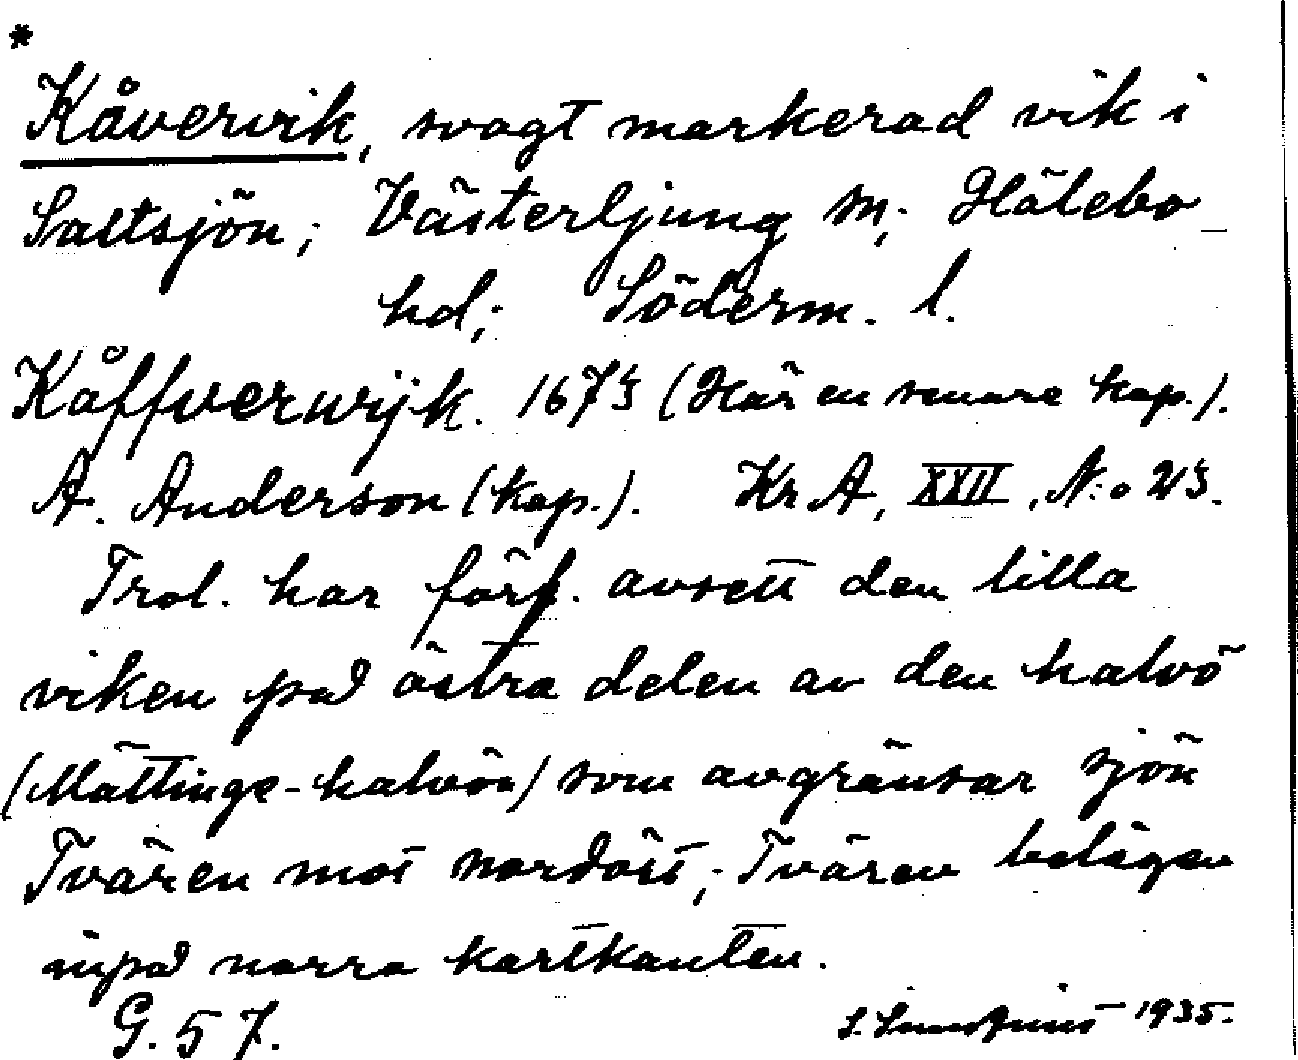 *
Kåvervik, svagt markerad vik i
Saltsjön; Västerljung sn; Hölebo
hd; Söderm. l.
Kåffverwijk. 1675 (Här en senare kop.).
A. Anderson (kop.). KrA, XXII, N:o 25.
Trol. har förf. avsett den lilla
viken på östra delen av den halvö
(Mättinge-halvön) som avgränsar sjön
Tvären mot nordöst; Tvären belägen
inpå norra kartkanten.
G. 57. 1935.